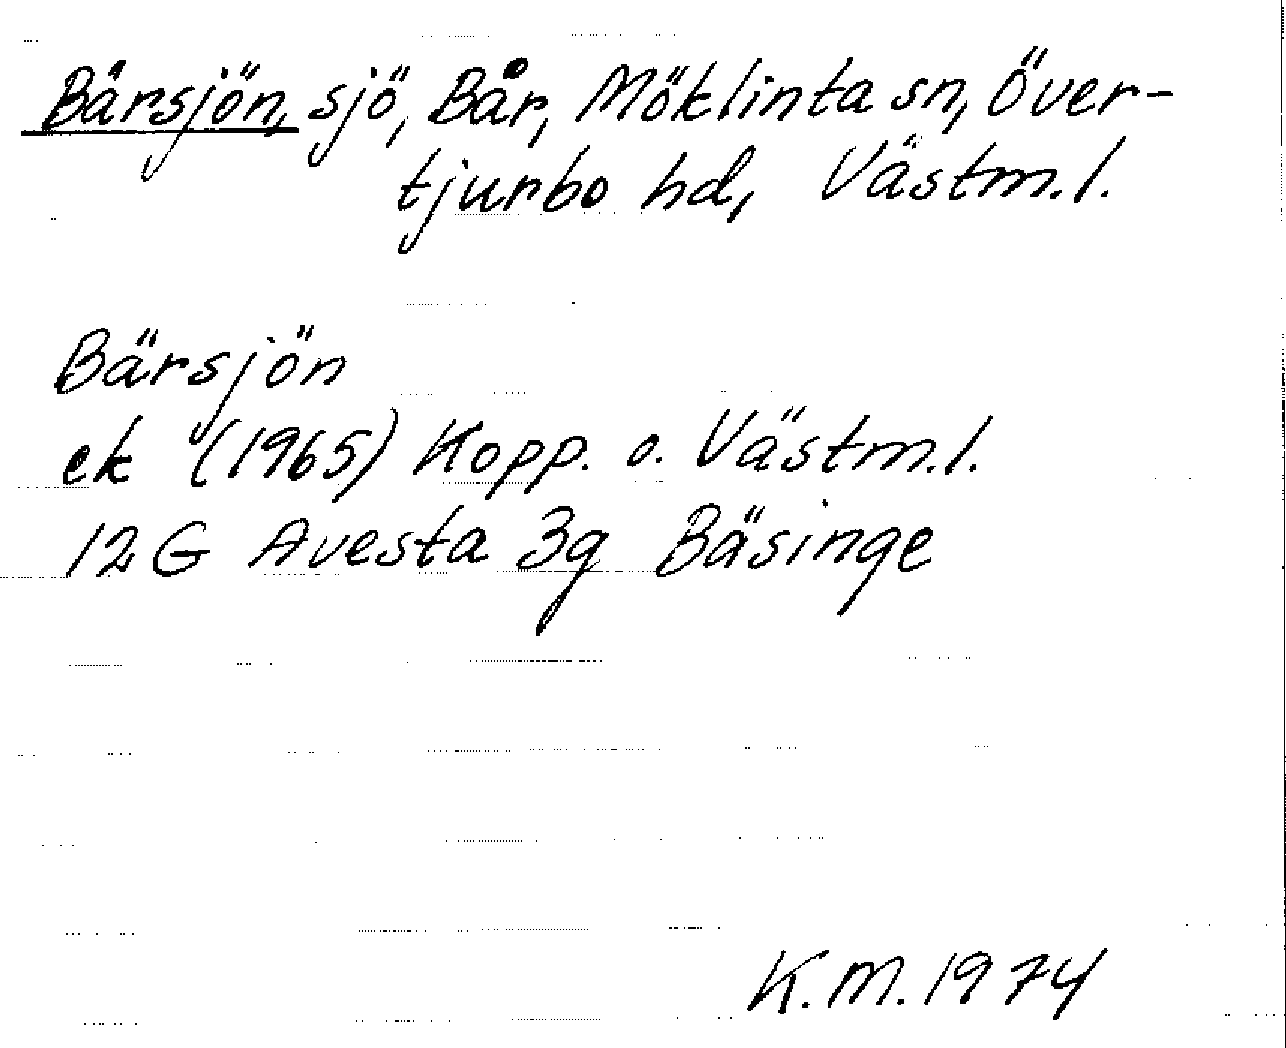 Bärsjön, sjö, Bår, Möklinta sn, Över-
tjurbo hd, Västm.l.
Bärsjön
ek (1965) Kopp. o. Västm.l.
12G Avesta 3g Bäsinge
K.M. 1974